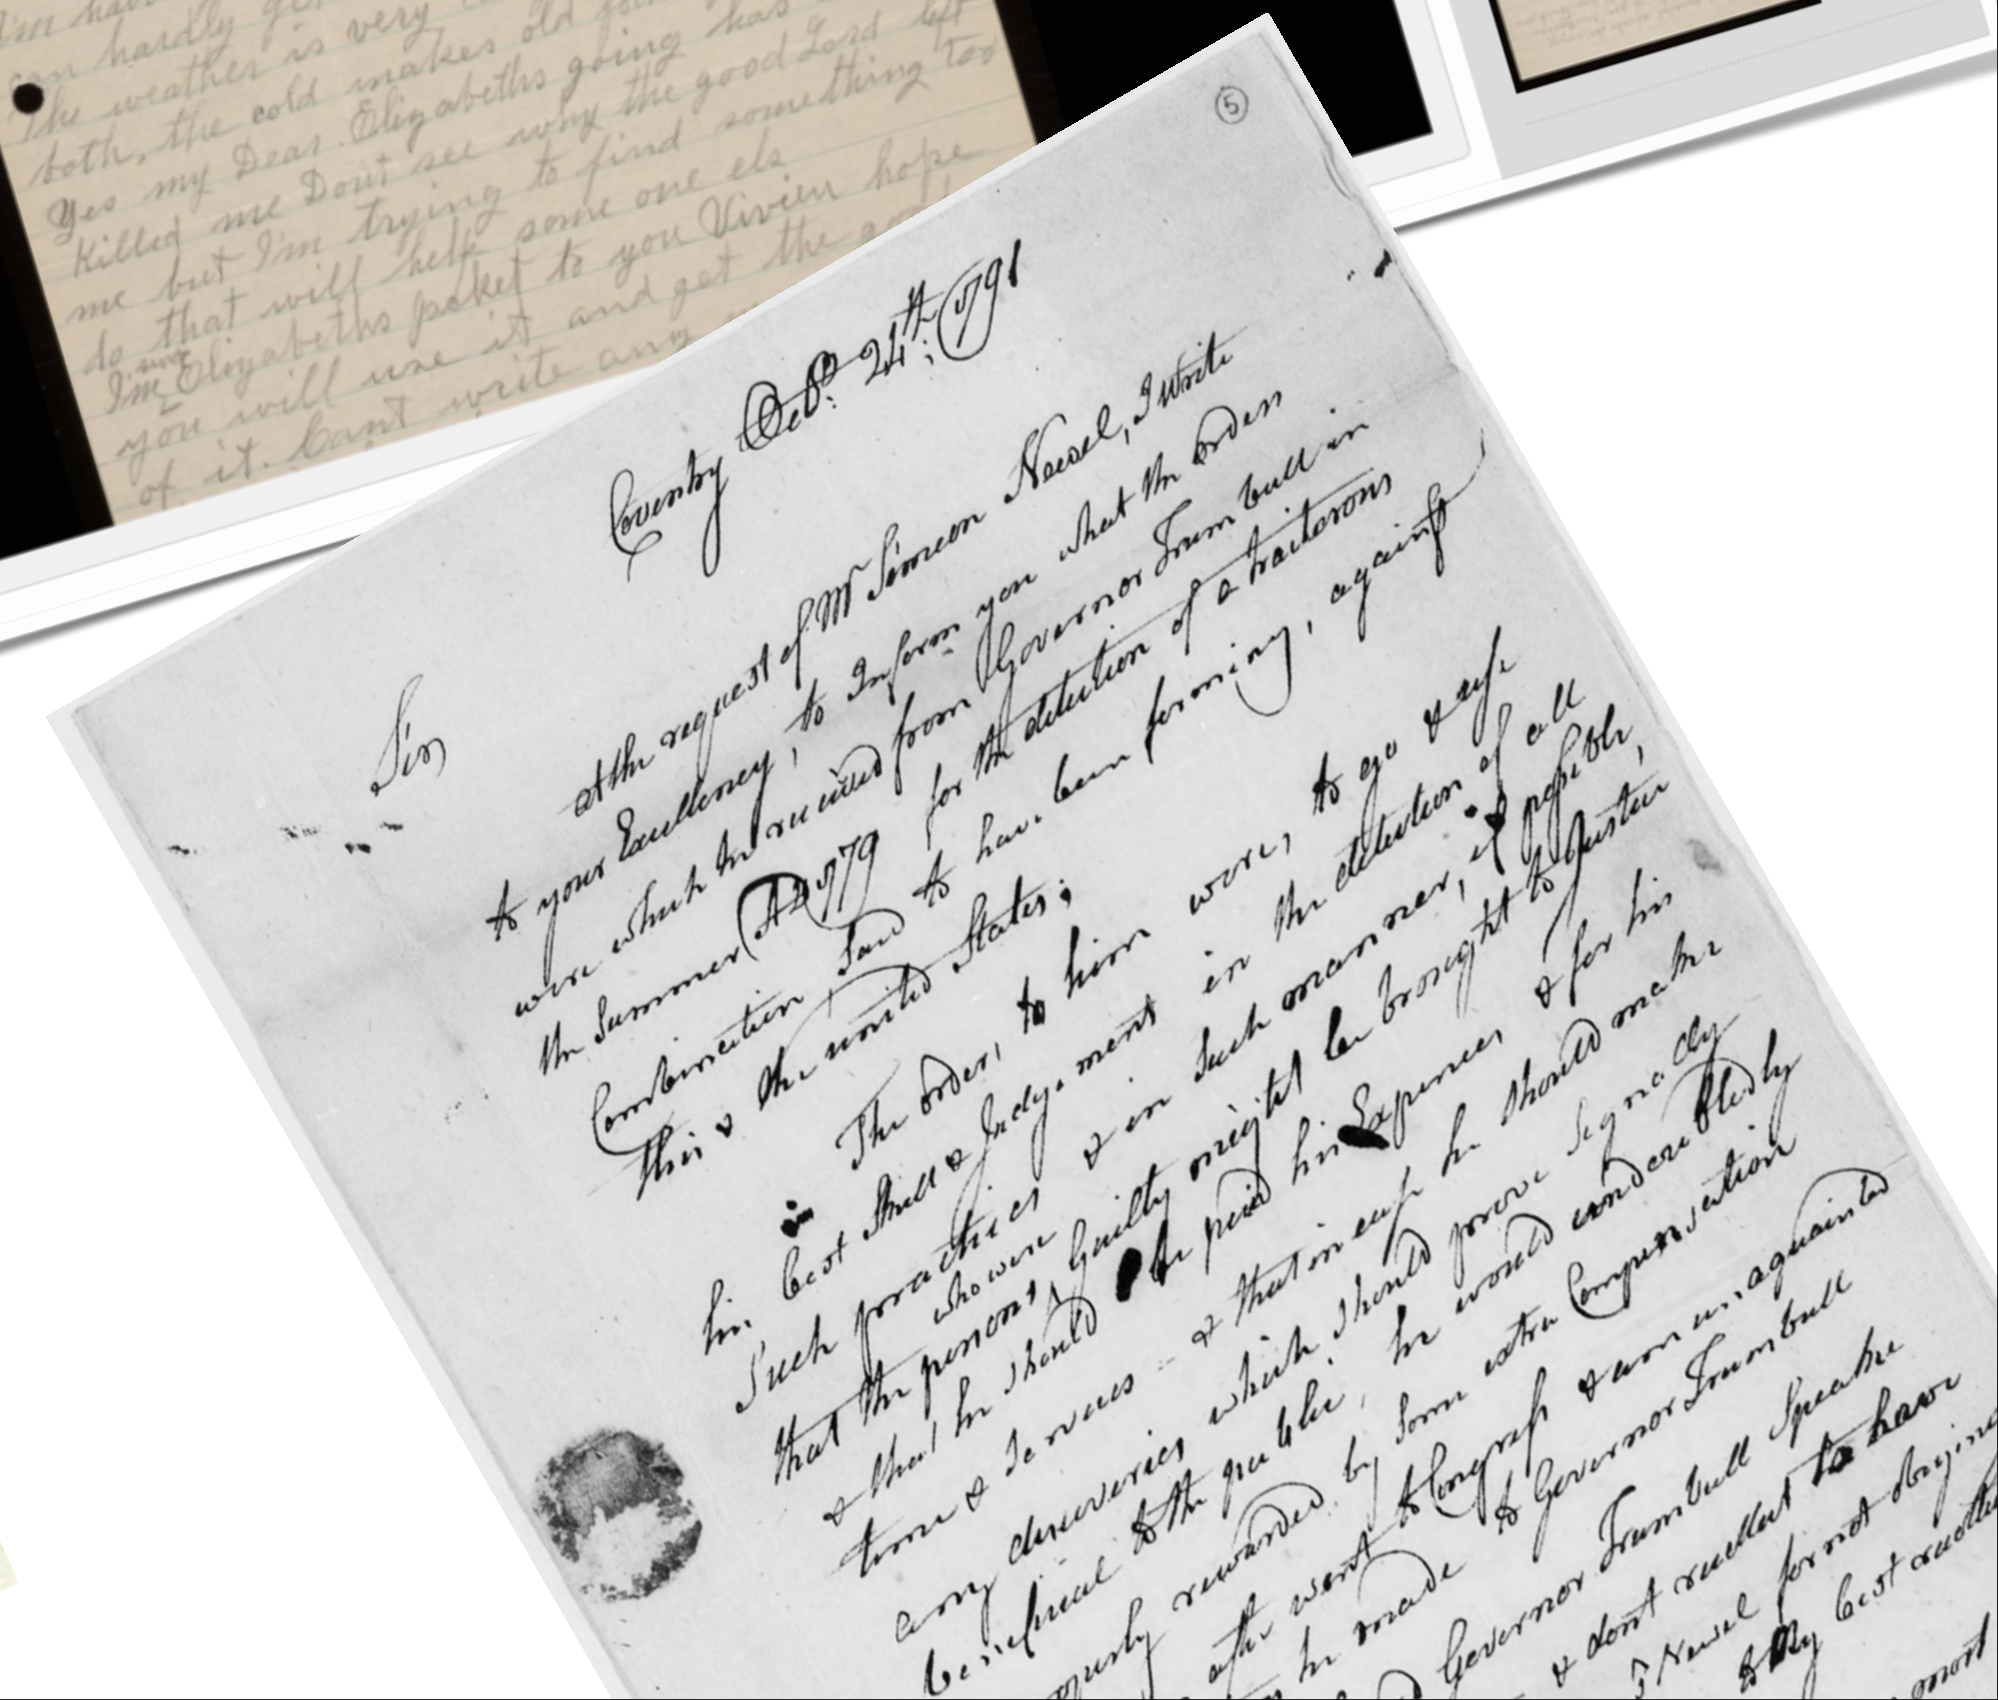 can hardly
The weather is very
both, the cold makes old
Yes my Dear. Elizabeths going has
Killed me Dont see why the good Lord left
me but I'm trying to find something too
do that will help some one els
I'm sure Elizabeths poket to you Vivien hope
you will use it and get the good
of it. Cant write any
5
Coventry Octbr. 24th: 1791
Sir
at the request of Mr Simeon Newel, I write
to your Excellency, to Inform you what the orders
were which he received from Governor Trumbull in
the Summer AD 1779 for the detection of a traiterous
Combination Said to have been forming, against
this & the united States;
The orders, to him were, to go & use
his best Skill & Judgement in the detection of all
Such practices & in Such manner, if possible,
that the persons who were Guilty might be brought to Justice
& that he should be paid his Expences & for his
time & Services - & that in case he should make
any discoveries which should prove Signally
beneficial to the public, he would undoubtedly
rewarded by Some extra Compensation
after went to Congress & was unaquainted
he made to Governor Trumbull
Governor Trumbull Speake
& dont recollect to have
Newel for not obtaining
to My best